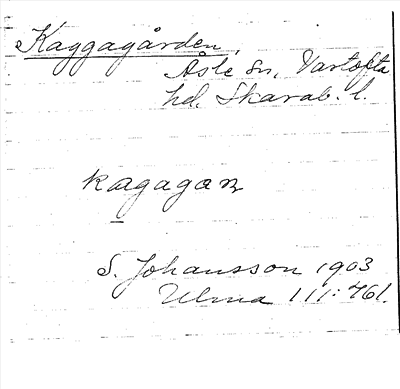 Kaggagården,
Åsle sn, Vartofta
hd. Skarab. l.
kagagaɷ
S. Johansson 1903
Ulma 111:461.